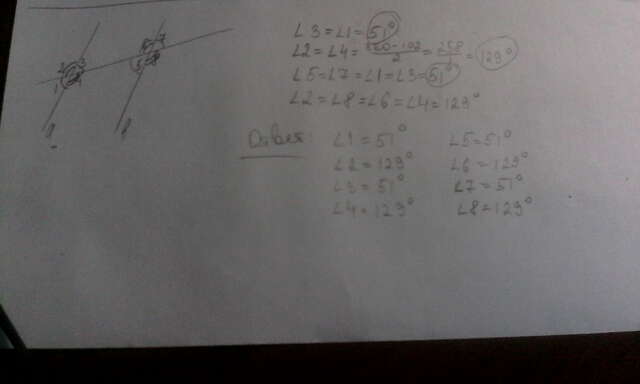 ∠3=∠1=51°
∠2=∠4=360-102/2=258/2=129°
∠5=∠7=∠1=∠3=51°
∠2=∠8=∠6=∠4=129°
Ответ: ∠1=51° ∠5=51°
∠2=129° ∠6=129°
∠3=51° ∠7=51°
∠4=129° ∠8=129°